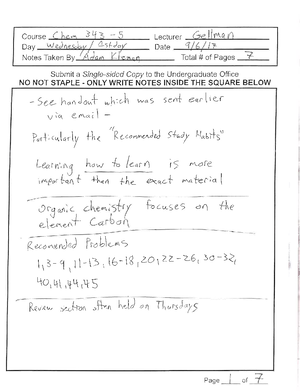 Course Chem 343-5 Lecturer Gellman
Day Wednesday / 1st day Date 9/6/17
Notes Taken By Adam Kleman Total # of Pages 7
Submit a Single-sided Copy to the Undergraduate Office
NO NOT STAPLE - ONLY WRITE NOTES INSIDE THE SQUARE BELOW
- See handout which was sent earlier
via email -
Particularly the "Recommended Study Habits"
Learning how to learn is more
important then the exact material
Organic chemistry focuses on the
element Carbon
Recomended Problems
1, 3-9, 11-13, 16-18, 20, 22-26, 30-32,
40, 41, 44, 45
Review section often held on Thursdays
Page 1 of 7